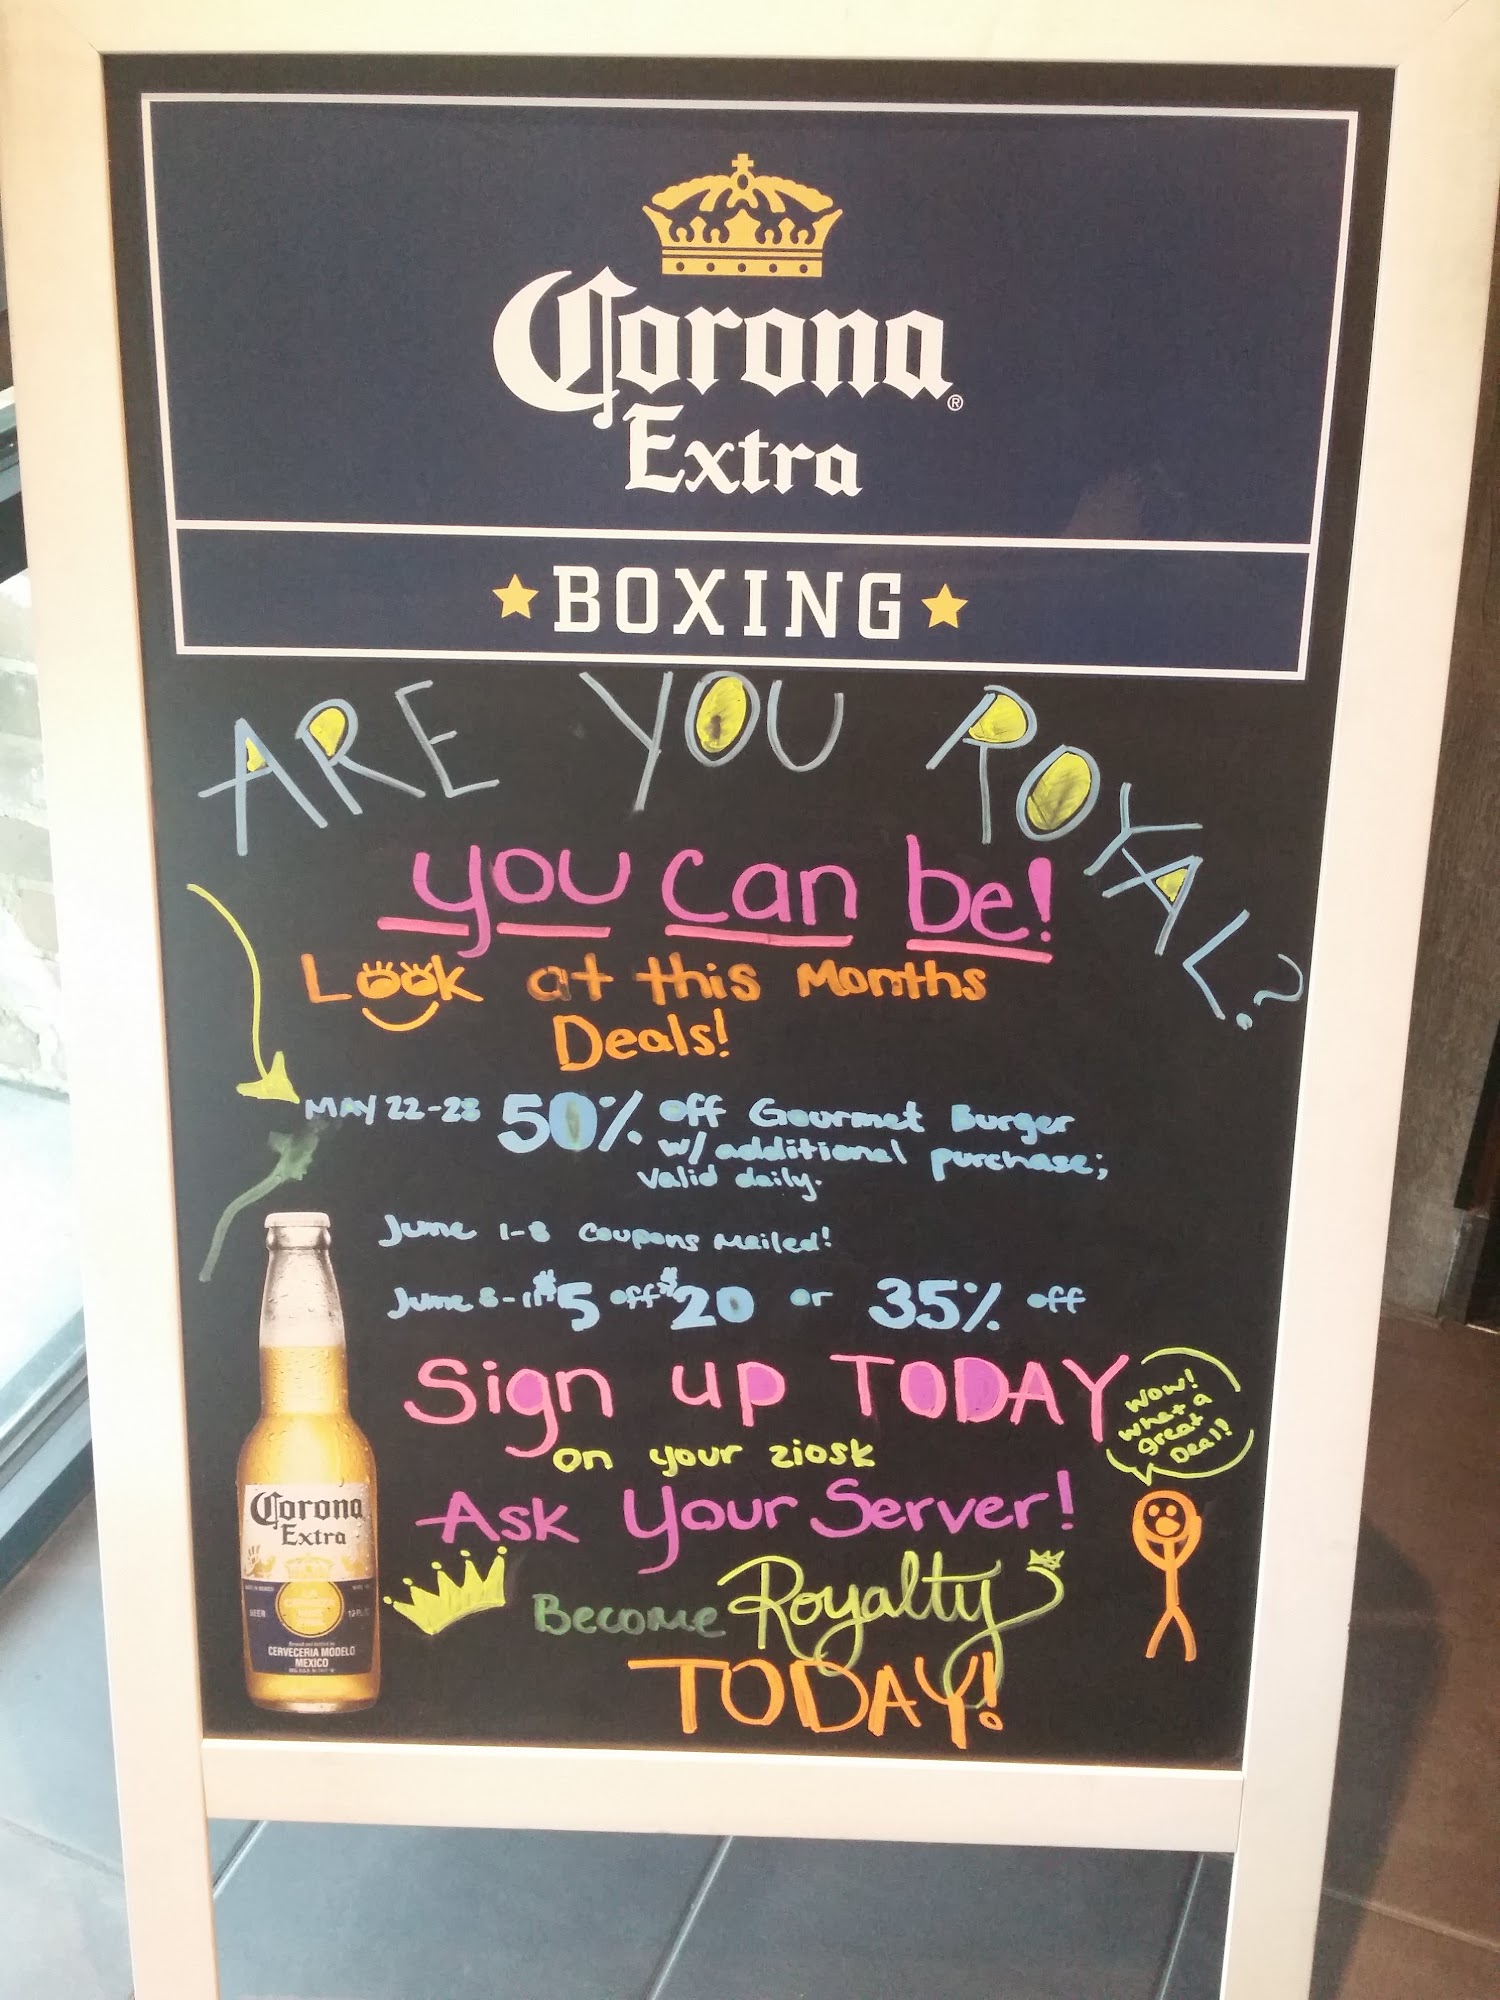 Corona®
Extra
BOXING
ARE YOU ROYAL?
you can be!
Look at this Months
Deals!
MAY 22-28 50% off Gourmet Burger
w/ additional purchase;
valid daily.
June 1-8 Coupons Mailed!
June 8-11 $5 off $20 or 35% off
Sign up TODAY
on your ziosk
Wow!
what a
great
Deal!
Ask Your Server!
Become Royalty
TODAY!
Corona
Extra
BEER
CERVECERIA MODELO
MEXICO